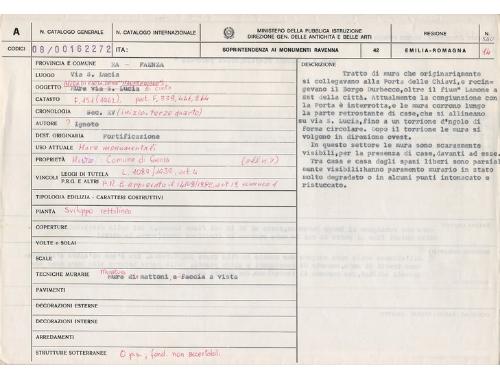 A
N. CATALOGO GENERALE
N. CATALOGO INTERNAZIONALE
MINISTERO DELLA PUBBLICA ISTRUZIONE
DIREZIONE GEN. DELLE ANTICHITÀ E BELLE ARTI
REGIONE
N.
CODICI
08/00162272
ITA:
SOPRINTENDENZA AI MONUMENTI RAVENNA
42
EMILIA-ROMAGNA
14
PROVINCIA E COMUNE
RA - FAENZA
LUOGO
Via S. Lucia
OGGETTO
Mura via S. Lucia
CATASTO
CRONOLOGIA
Sec. XV (inizio terzo quarto)
AUTORE
? ignoto
DEST. ORIGINARIA
Fortificazione
USO ATTUALE
Mura monumentali
PROPRIETÀ
Comune di
VINCOLI
LEGGI DI TUTELA
L. 1089/1939, art. 4
P.R.G. E ALTRI
TIPOLOGIA EDILIZIA - CARATTERI COSTRUTTIVI
PIANTA
Sviluppo rettilineo
COPERTURE
VOLTE o SOLAI
SCALE
TECNICHE MURARIE
Mura di mattoni a faccia a vista
PAVIMENTI
DECORAZIONI ESTERNE
DECORAZIONI INTERNE
ARREDAMENTI
STRUTTURE SOTTERRANEE
fond. non accertabili
DESCRIZIONE
Tratto di mura che originariamente
si collegavano alla Porta delle Chiavi, e racin-
gevano il Borgo Durbecco, oltre il fiume Lamone a
est della città. Attualmente la congiunzione con
la Porta è interrotta, e le mura corrono lungo
la parte retrostante di case, che si allineano
su via S. Lucia, fino a un torrione d'angolo di
forma circolare. Dopo il torrione le mura si
volgono in direzione ovest.
In questo settore le mura sono scarsamente
visibili, per la presenza di case, davanti ad esse.
Tra casa e casa dagli spazi liberi sono parzial-
mente visibili: hanno paramento murario in stato
molto degradato o in alcuni punti intonacato e
ristuccato.